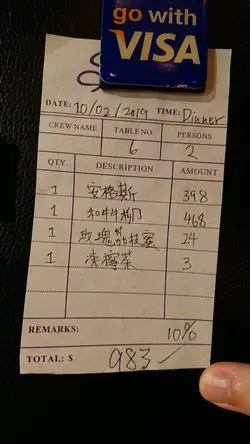 go with
VISA
DATE: 10/02/2019 TIME: Dinner
CREW NAME TABLE NO PERSONS
6 2
QTY. DESCRIPTION AMOUNT
1 安格斯 398
1 和牛柳 468
1 玫瑰荔枝蜜 24
1 凍檸茶 3
REMARKS: 10%
TOTAL: $ 983